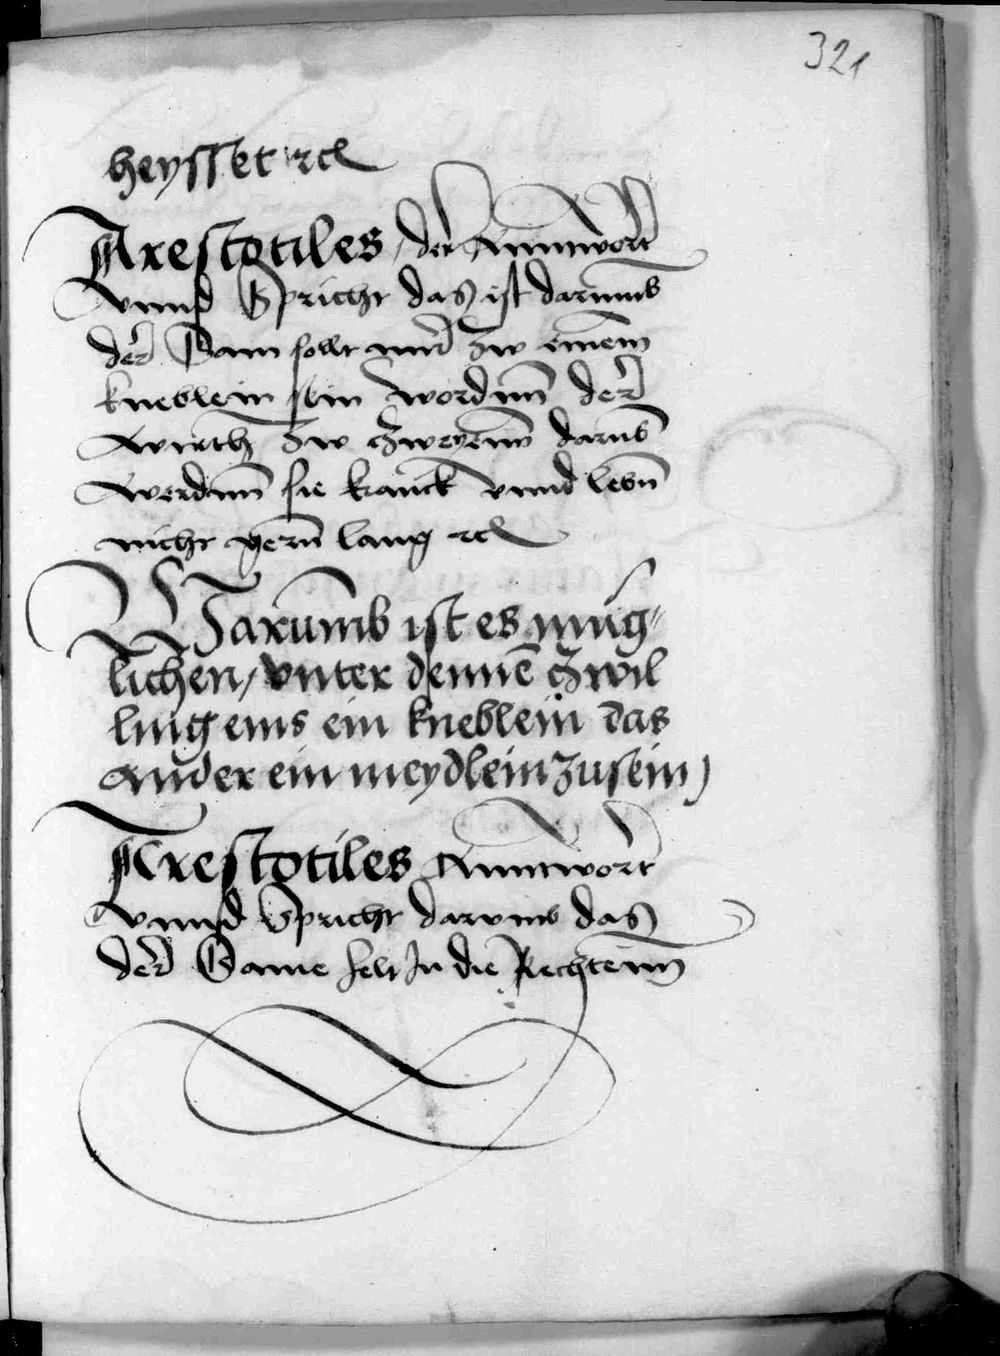 321
heysset ꝛcꝉ
Arestotiles der Anntwort
vnnd Spricht das ist darumb
der Sam sollt nur zw einem
kneblein sein wordnn der
wirth zw zweyenn darub
werdnn sie kranck vnnd lebn
nicht gern lang ꝛcꝉ
Warumb ist es müg-
lichen, vnter dennē zwil
ling eins ein kneblein das
ander ein meydlein zusein
Arestotiles Anntwort
vnnd Spricht darumb das
der Same felt In die Rechtenn